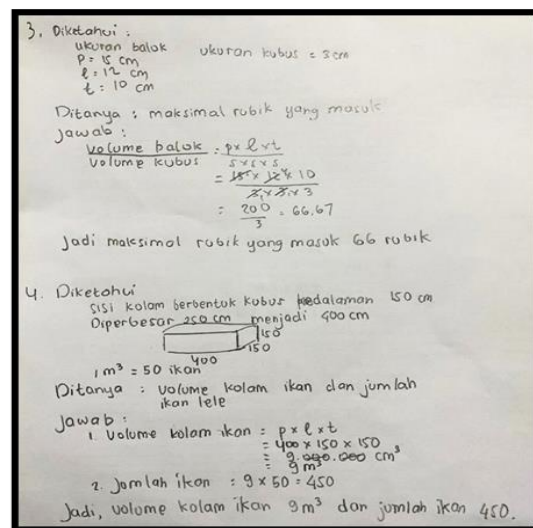 3. Diketahui :
ukuran balok ukuran kubus = 3 cm
P = 15 cm
l = 12 cm
t = 10 cm
Ditanya : maksimal rubik yang masuk
Jawab :
volume balok / volume kubus = p x l x t / s x s x s
= 15⁵ x 12⁴ x 10 / 3₁ x 3₁ x 3
= 200 / 3 = 66,67
Jadi maksimal rubik yang masuk 66 rubik
4. Diketahui
sisi kolam berbentuk kubus kedalaman 150 cm
Diperbesar 250 cm menjadi 400 cm
150
150
400
1 m³ = 50 ikan
Ditanya : volume kolam ikan dan jumlah
ikan lele
Jawab :
1. Volume kolam ikan = p x l x t
= 400 x 150 x 150
= 9.000.000 cm³
= 9 m³
2. Jumlah ikan : 9 x 50 = 450
Jadi, volume kolam ikan 9m³ dan jumlah ikan 450.